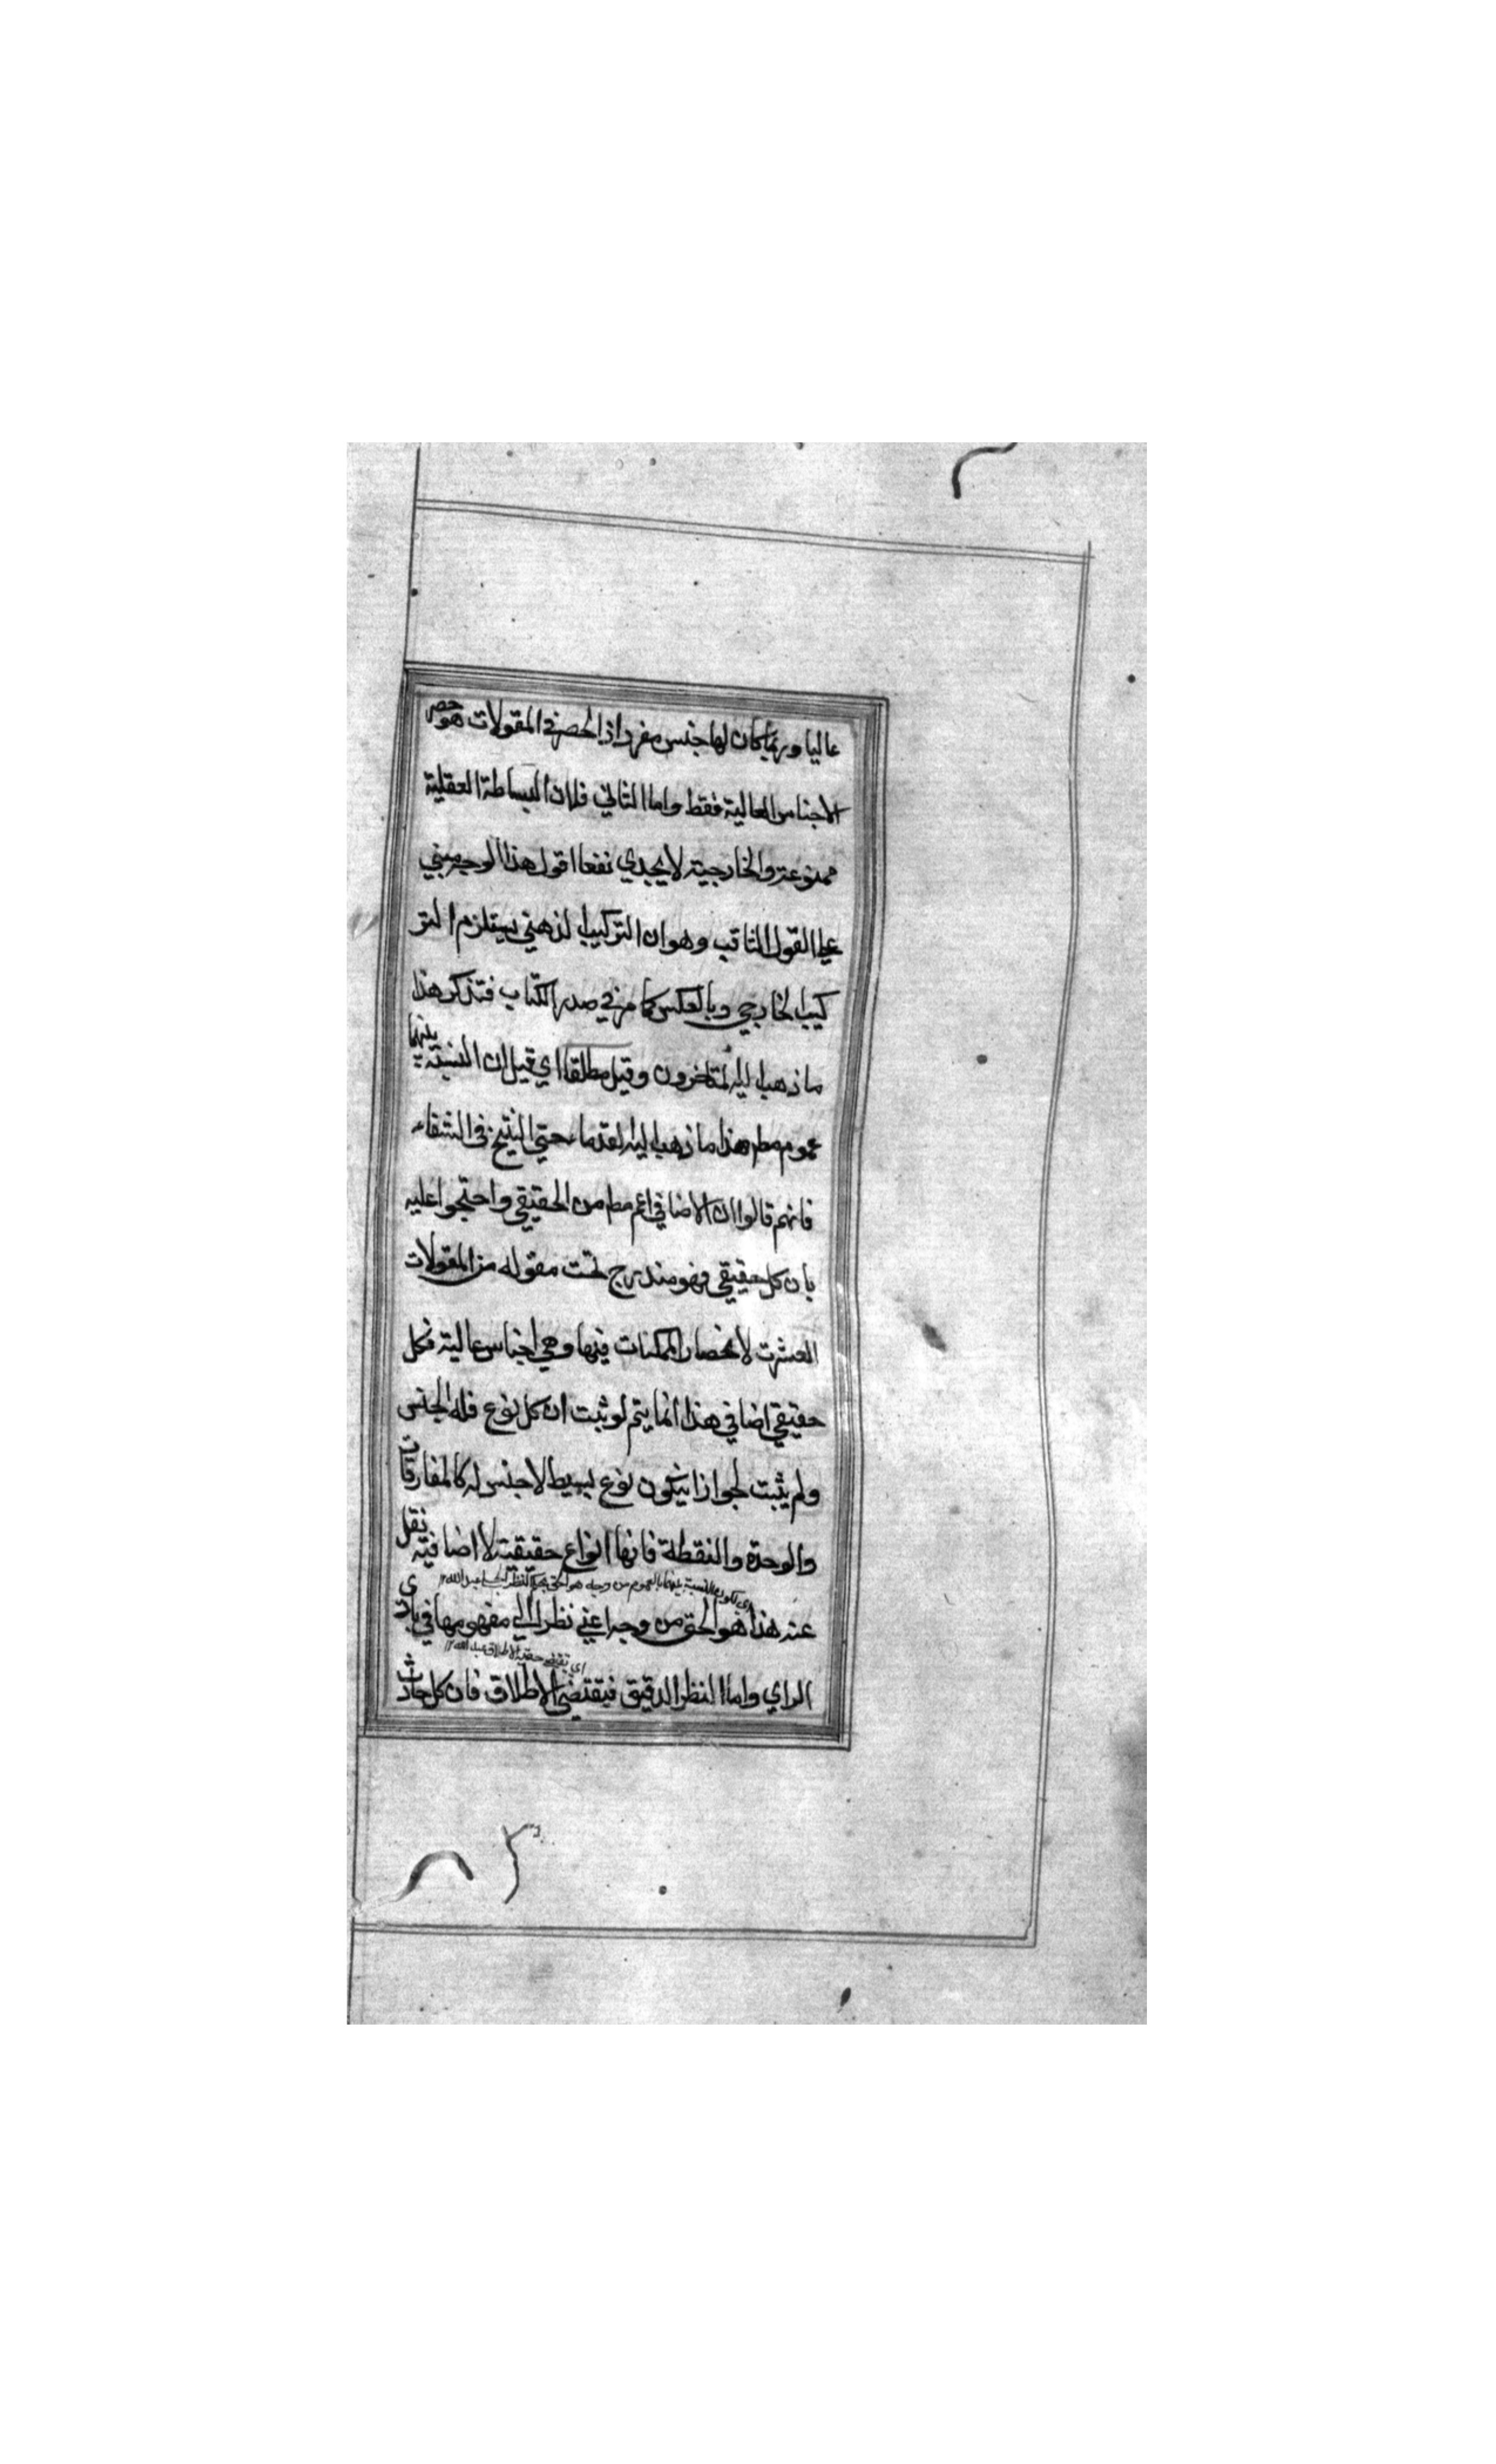 عاليا وربما كان لها جنس مفرد اذ الحصر في المقولات هو حصر
الاجناس العالية فقط واما الثاني فلان البساطة العقلية
ممنوعة والخارجية لا يجدي نفعا اقول هذا الوجه مبني
على القول الثاقب وهو ان التركيب الذهني يستلزم التر
كيب الخارجي وبالعكس كما مر في صدر الكتاب فتذكر هذا
ما ذهب اليه المتاخرون وقيل مطلقا اي قيل ان النسبة بينهما
عموم مطم هذا ما ذهب اليه القدماء حتي الشيخ في الشفاء
فانهم قالوا ان الاضافي اعم مطم من الحقيقي واحتجوا عليه
بان كل حقيقي فهو مندرج تحت مقوله من المقولات
العشرت لانحصار الممكنات فيها وهي اجناس عالية فكل
حقيقي اضافي هذا انما يتم لو ثبت ان كل نوع فله الجنس
ولم يثبت لجواز ان يكون نوع بسيط لا جنس له كالمفارقات
والوحدة والنقطة فانها انواع حقيقية لا اضافية نقل
اي كون النسبة بينهما بالعموم من وجه هو الحق بحكم النظر الجلي عبد الله ١٢
عنه هذا هو الحق من وجه اعني نظرا الي مفهومها في بادي
اي تقتضي حقية الاطلاق عبد الله ١٢
الراي واما النظر الدقيق فيقتضي الاطلاق فان كل حادث